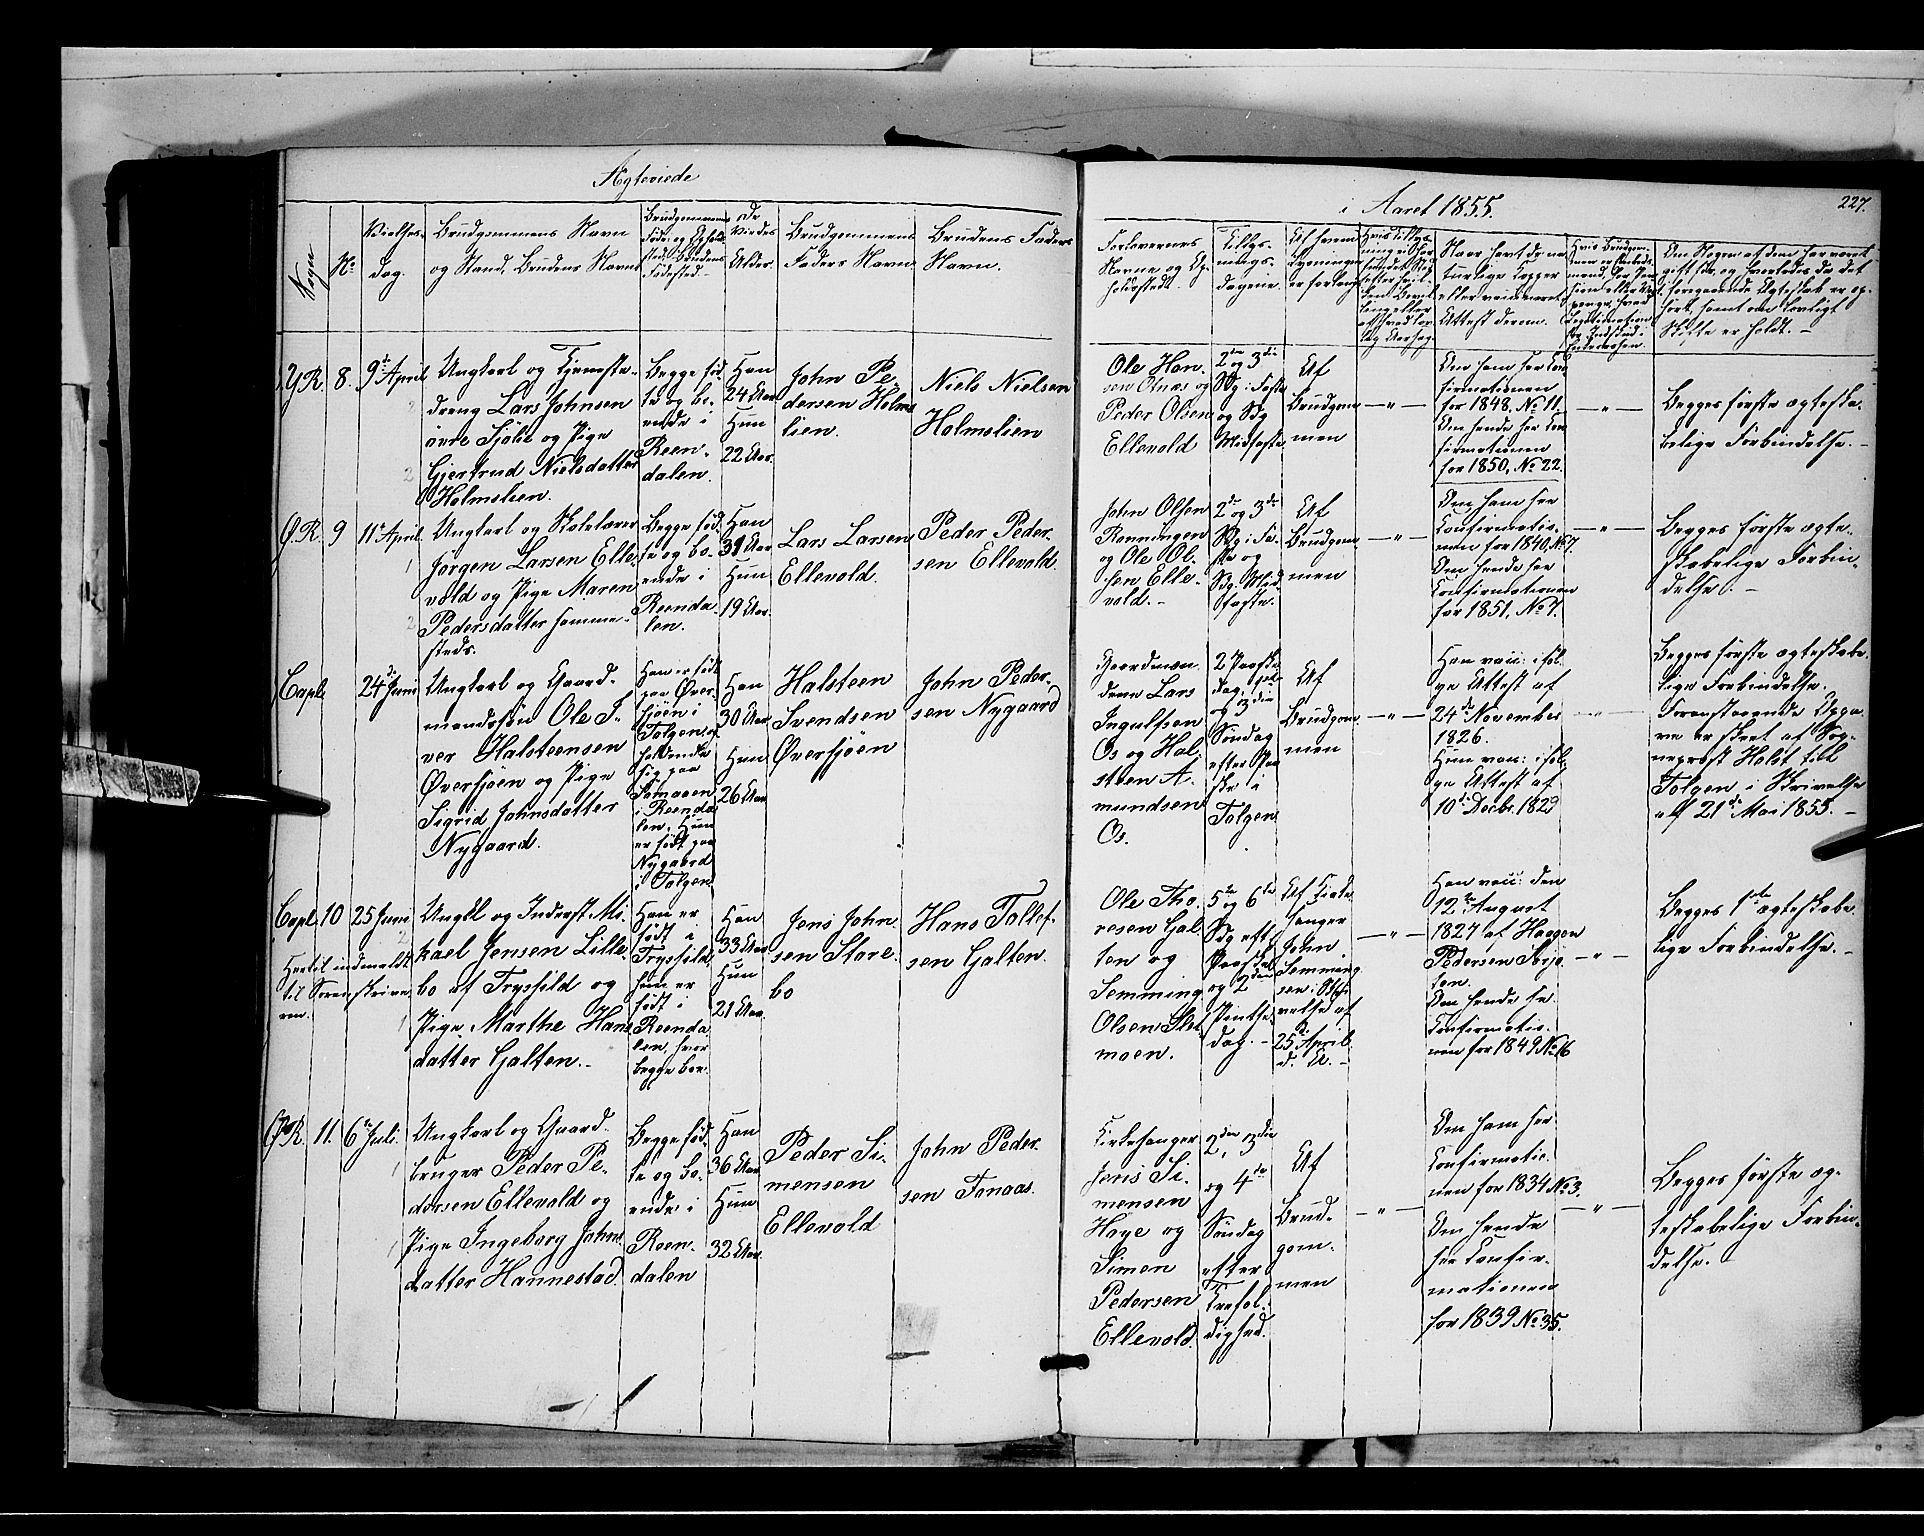 Ægteviede
i Aaret 1855.
227.
Sogn
No
Vielses-
dag.
Brudgommens Navn
og Stand, Brudens Navn
Brudgommens
Føde- og Opholds-
sted, Brudens
Fødested
De
Viedes
Alder.
Brudgommens
Faders Navn
Brudens Faders
Navn.
Forlovernes
Navne og Op-
holdssted.
Tillys-
nings-
dagene.
Af hvem
Lysningen
er forlangt
Naar havt de na-
turlige Kopper
eller vaccineret,
Attest derom.
Om Nogen af dem har været
gift før, og hvorledes da det
foregaaende Ægteskab er op-
hørt, samt om lovligt
Skifte er holdt. –
Y.R.
8.
9de April
Ungkarl og Tjeneste-
dreng Lars Johnsen
øvre Sjøli og Pige
Gjertrud Nielsdatter
Holmslien.
Begge fød-
te og bo-
ende i
Reen-
dalen.
Han
24 Aar
Hun
22 Aar.
John Pe-
dersen Holms-
lien.
Niels Nielsen
Holmslien
Ole Han-
sen Otnæs og
Peder Olsen
Ellevold
2den og 3die
Sdg i Faste
og Sdg
Midfaste
Af
Brudgom-
men
— " —
Om ham see Con-
firmationen
for 1848, No 11.
Om hende see Con-
firmationen
for 1850, No 22.
— " —
Begges første ægteska-
belige Forbindelse. –
Ø.R.
9
11te April
Ungkarl og Skolelærer
Jørgen Larsen Elle-
vold og Pige Maren
Pedersdatter samme-
steds.
Begge fød-
te og bo-
ende i
Reenda-
len.
Han
31 Aar
Hun
19 Aar.
Lars Larsen
Ellevold.
Peder Peder-
sen Ellevold.
John Olsen
Rønningen
og Ole Ol-
sen Elle-
vold. –
2de og 3die
Sdg i Fa-
ste og
Sdg. Mid-
faste.
Af
Brudgom-
men
— " —
Om ham see
Confirmatio-
nen for 1840, No 7.
Om hende see
Confirmationen
for 1851, No 7.
— " —
Begges første ægte-
skabelige Forbin-
delse. –
Capel
24de Juni
Ungkarl og Gaard-
mandssøn Ole I-
ver Halsteensen
Øversjøen og Pige
Sigrid Johnsdatter
Nygaard.
Han er født
paa Øver-
sjøen i
Tolgen, op-
holdende
sig paa
Sømoen
i Reenda-
len. Hun
er født paa
Nygaard
i Tolgen
Han
30 Aar
Hun
26 Aar
Halsteen
Svendsen
Øversjøen
John Peder-
sen Nygaard
Gaardmæn-
dene Lars
Ingulfsen
Os og Hal-
steen A-
mundsen
Os.
2 Paaske-
dag,
og 3die
Søndag
efter Paa-
ske i
Tolgen
Af
Brudgom-
men
— " —
Han vacc: iføl-
ge Attest af
24de November
1826.
Hun vacc: iføl-
ge Attest af
10de Decbr. 1829
— " —
Begges første ægteskabe-
lige Forbindelse.
Foranstaaende Opga-
ve er skeet af Sog-
neprest Holst til
Tolgen i Skrivelse
af 21de Mai 1855. –
Capel
10
25 Juni
Hertil indmeldt
til Sorenskrive-
ren.
Ungkl og Inderst Mi-
kael Jensen Lille-
bo af Trysfild og
Pige Marthe Hans-
datter Galten. –
Han er
født i
Trysfild,
hun er
født i
Reenda-
len, hvor
begge boe.
Han
33 Aar
Hun
21 Aar.
Jens John-
sen Store-
bo
Hans Tollef-
sen Galten.
Ole Tho-
resen Gal-
ten og
Semming
Olsen
moen.
5te og 6te
Sdg eft.
Paaske
og 2den
Pintse-
dag. –
Af Kirke-
sanger
John
Semming-
sen i Skri-
velse af
25 April
d. A. –
— " —
Han vacc: den
12te August
1827 af Haagen
Pedersen
Om hende see
Confirmatio-
nen for 1849 No 16
— " —
Begges 1ste ægteskabe-
lige Forbindelse. –
Ø.R.
11.
6te Juli.
Ungkarl og Gaard-
bruger Peder Pe-
dersen Ellevold og
Pige Ingeborg Johns-
datter Hannestad.
Begge fød-
te og bo-
ende i
Reen-
dalen
Han
36 Aar
Hun
32 Aar.
Peder Si-
mensen
Ellevold
John Peder-
sen Fonaas.
Kirkesanger
Jens Si-
mensen
Høye og
Simen
Pedersen
Ellevold.
2den, 3die
og 4de
Søndag
efter
Trefol-
dighed.
Af
Brud-
gom-
men
— " —
Om ham see
Confirmatio-
nen for 1834 No 3.
Om hende
see Confir-
mationen
for 1839 No 35.
— " —
Begges første æg-
teskabelige Forbin-
delse. –